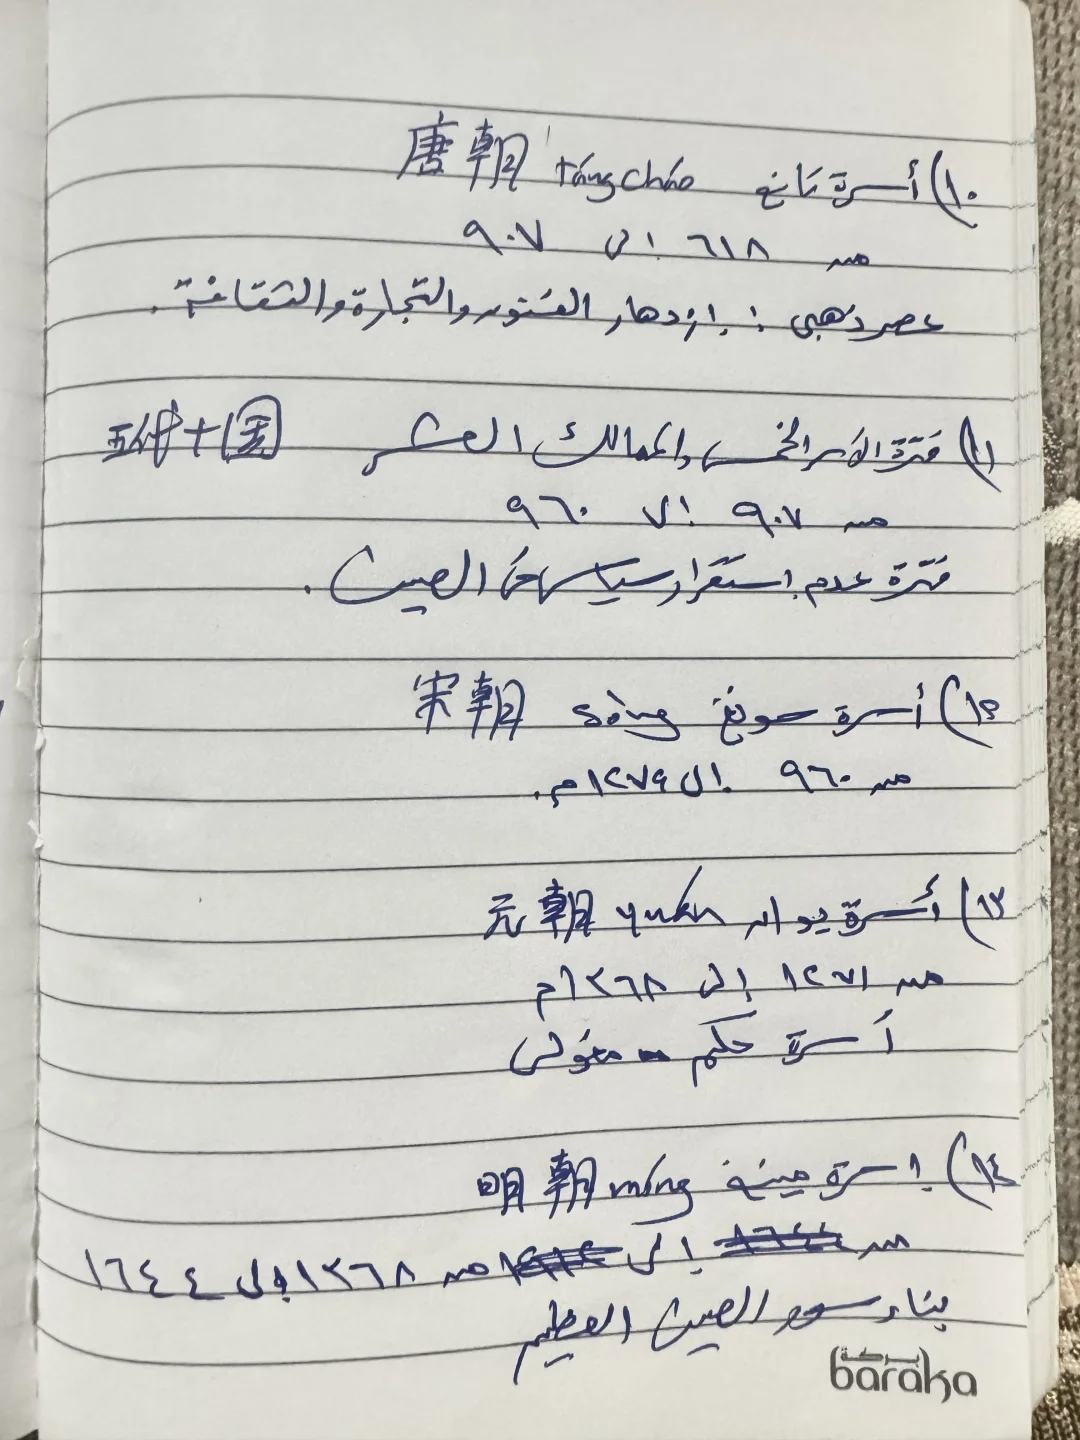 ١٠) أسرة تانغ tángcháo 唐朝
من ٦١٨ إلى ٩٠٧
عصر ذهبي : بازدهار الفنون والتجارة والثقافة .
١١) فترة الأسر الخمس والممالك العشر 五代十国
من ٩٠٧ إلى ٩٦٠
فترة عدم إستقرار سياسي في الصين .
١٢) أسرة سونغ sòng 宋朝
من ٩٦٠ إلى ١٢٧٩م.
١٣) أسرة يوان yuán 元朝
من ١٢٧١ إلى ١٣٦٨م
أسرة حكم مغولي
١٤) إسرة مينغ míng 明朝
من إلى من ١٣٦٨ إلى ١٦٤٤
بناء سور الصين العظيم
بركة
baraka